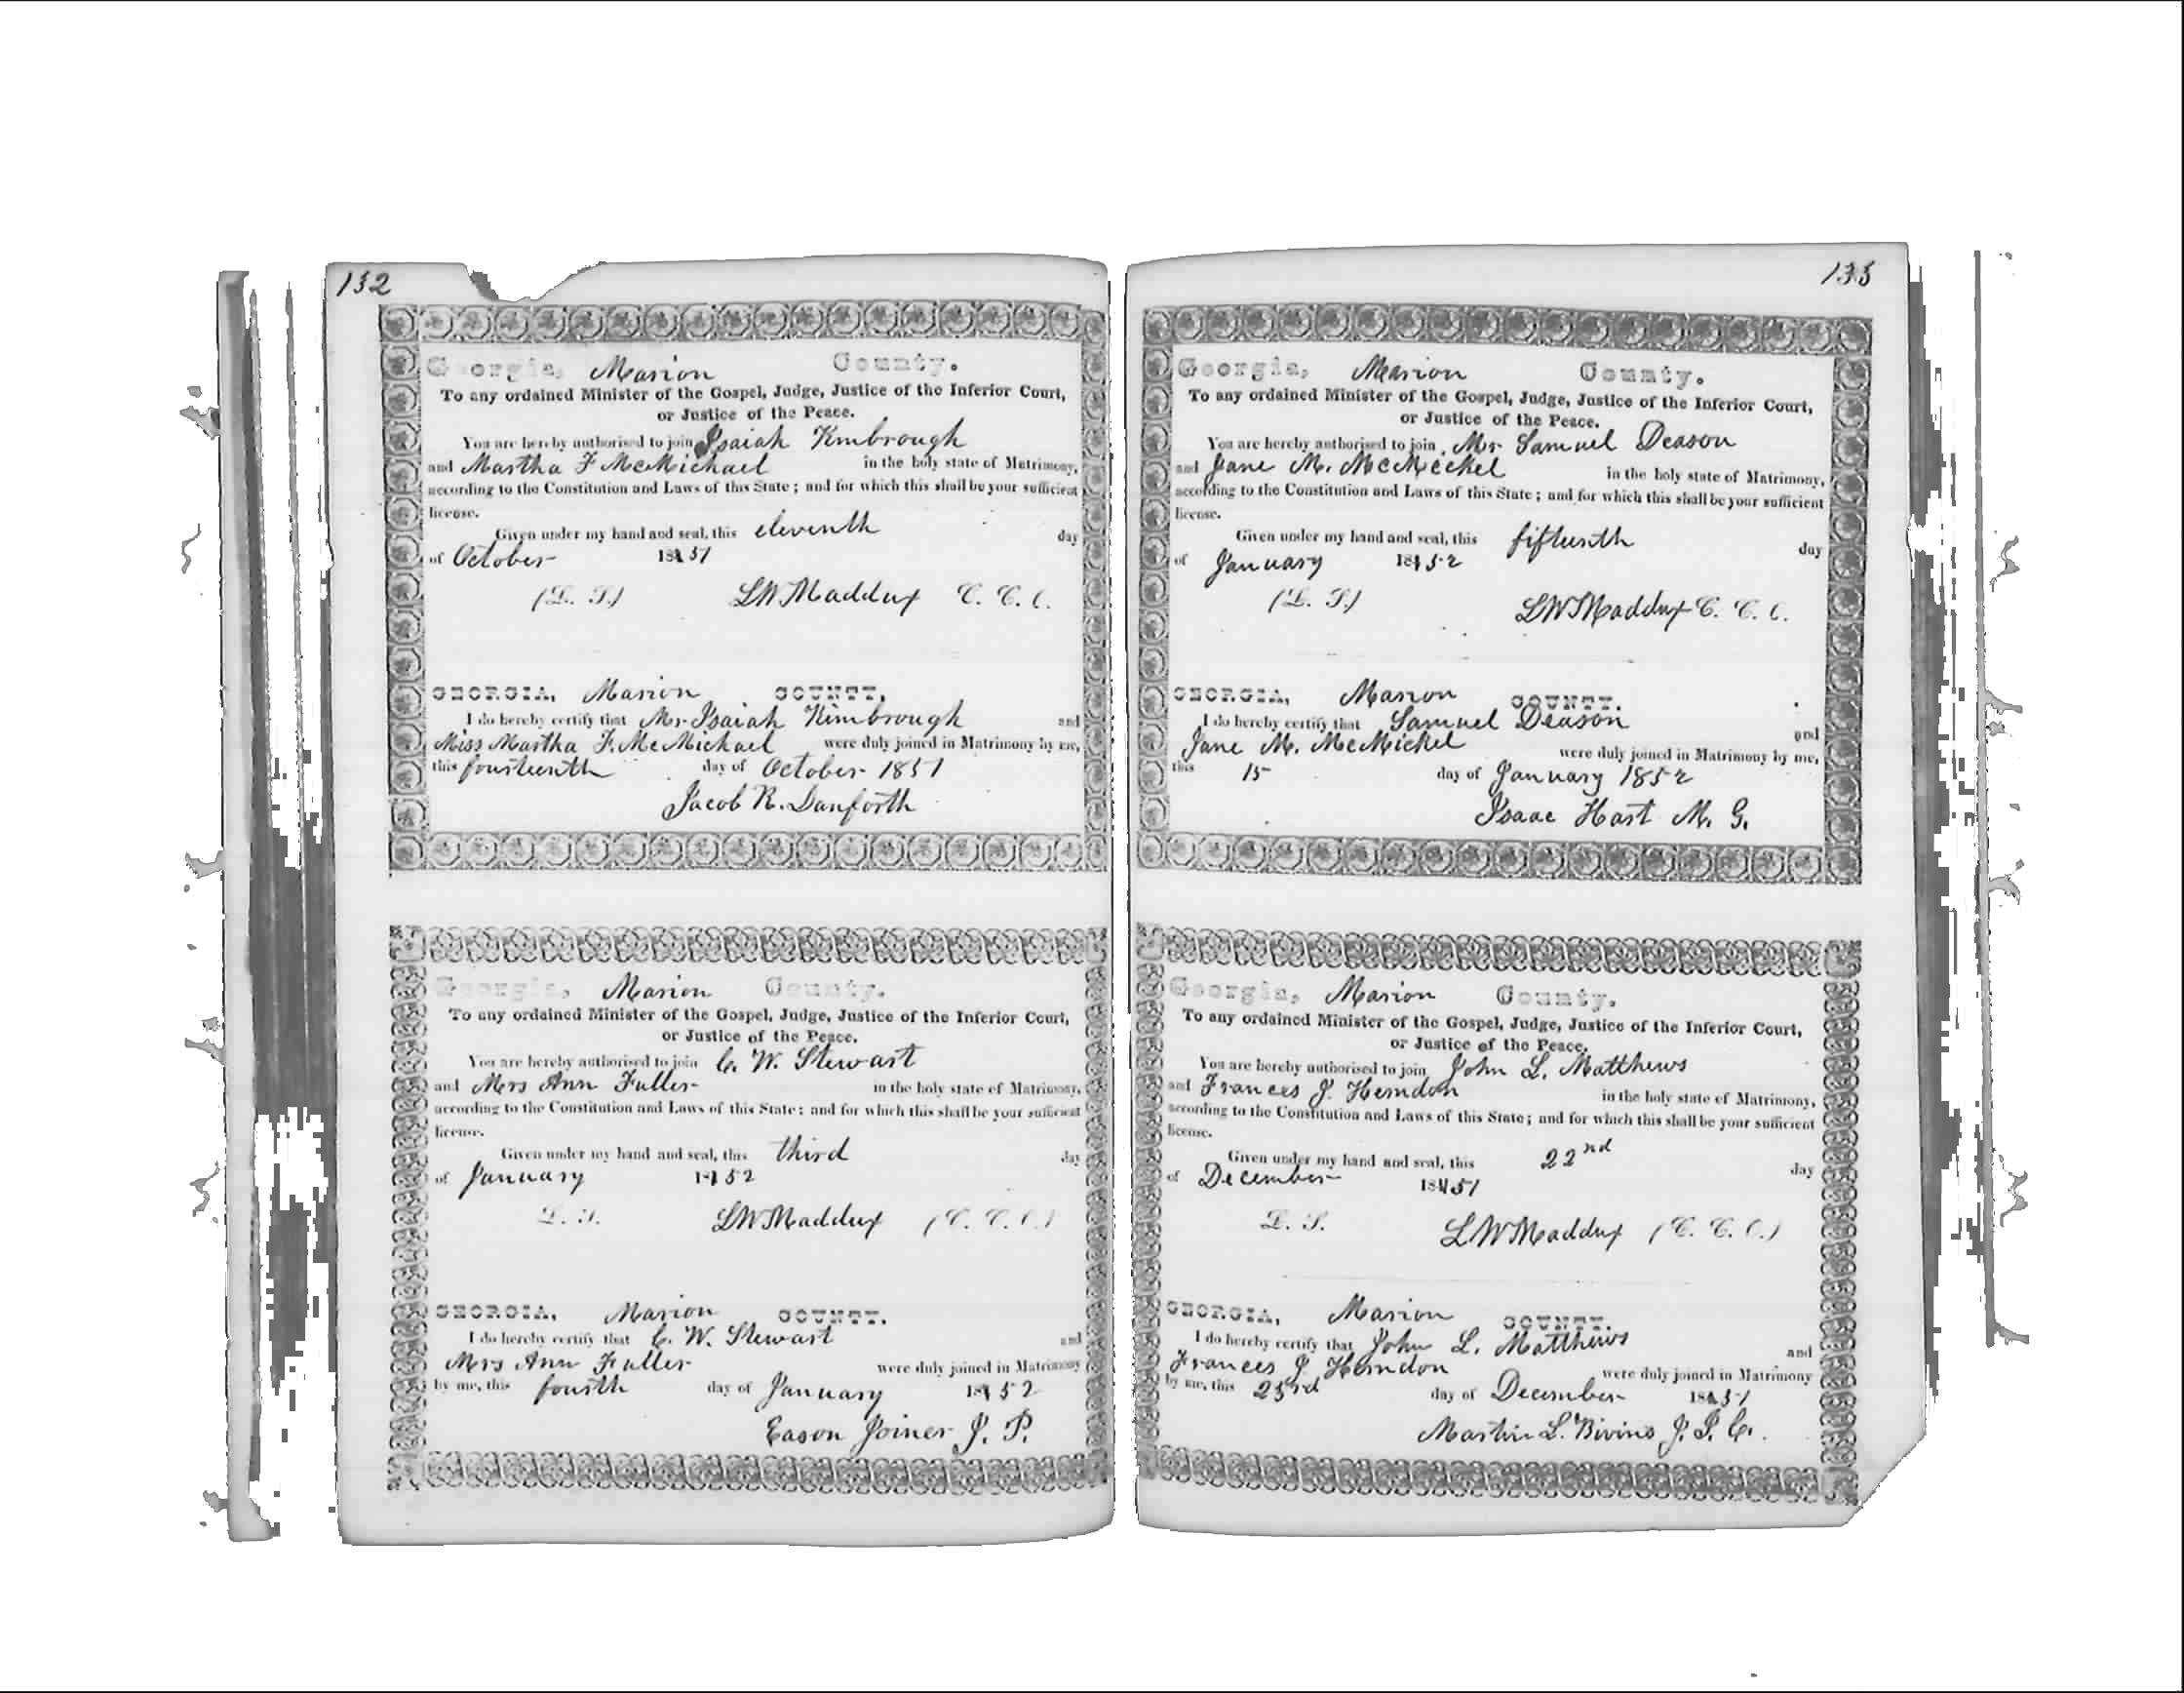 132
Georgia, Marion County.
To any ordained Minister of the Gospel, Judge, Justice of the Inferior Court,
or Justice of the Peace.
You are hereby authorised to join Isaiah Kimbrough
and Martha F McMichael in the holy state of Matrimony,
according to the Constitution and Laws of this State; and for which this shall be your sufficient
license.
Given under my hand and seal, this eleventh day
of October 1851
(L. S.) LW Maddux C. C. C.
GEORGIA, Marion COUNTY,
I do hereby certify that Mr Isaiah Kimbrough and
Miss Martha F. McMichael were duly joined in Matrimony by me,
this fourteenth day of October 1851
Jacob R. Danforth
Georgia, Marion County.
To any ordained Minister of the Gospel, Judge, Justice of the Inferior Court,
or Justice of the Peace.
You are hereby authorised to join C. W. Stewart
and Mrs Ann Fuller in the holy state of Matrimony,
according to the Constitution and Laws of this State; and for which this shall be your sufficient
license.
Given under my hand and seal, this third day
of January 1852
L. S. LW Maddux (C. C. C.)
GEORGIA, Marion COUNTY.
I do hereby certify that C. W. Stewart and
Mrs Ann Fuller were duly joined in Matrimony
by me, this fourth day of January 1852
Eason Joiner J. P.
133
Georgia, Marion County.
To any ordained Minister of the Gospel, Judge, Justice of the Inferior Court,
or Justice of the Peace.
You are hereby authorised to join Mr Samuel Deason
and Jane M. McMeckel in the holy state of Matrimony,
according to the Constitution and Laws of this State; and for which this shall be your sufficient
license.
Given under my hand and seal, this fifteenth day
of January 1852
(L. S.) LW Maddux C. C. C.
GEORGIA, Marion COUNTY.
I do hereby certify that Samuel Deason and
Jane M. McMickel were duly joined in Matrimony by me,
this 15 day of January 1852
Isaac Hart M. G.
Georgia, Marion County.
To any ordained Minister of the Gospel, Judge, Justice of the Inferior Court,
or Justice of the Peace.
You are hereby authorised to join John L. Matthews
and Frances J. Herndon in the holy state of Matrimony,
according to the Constitution and Laws of this State; and for which this shall be your sufficient
license.
Given under my hand and seal, this 22nd day
of December 1851
L. S. LW Maddux (C. C. C.)
GEORGIA, Marion COUNTY.
I do hereby certify that John L. Matthews and
Frances J Herndon were duly joined in Matrimony
by me, this 23rd day of December 1851
Martin L. Bivins J. I. C.